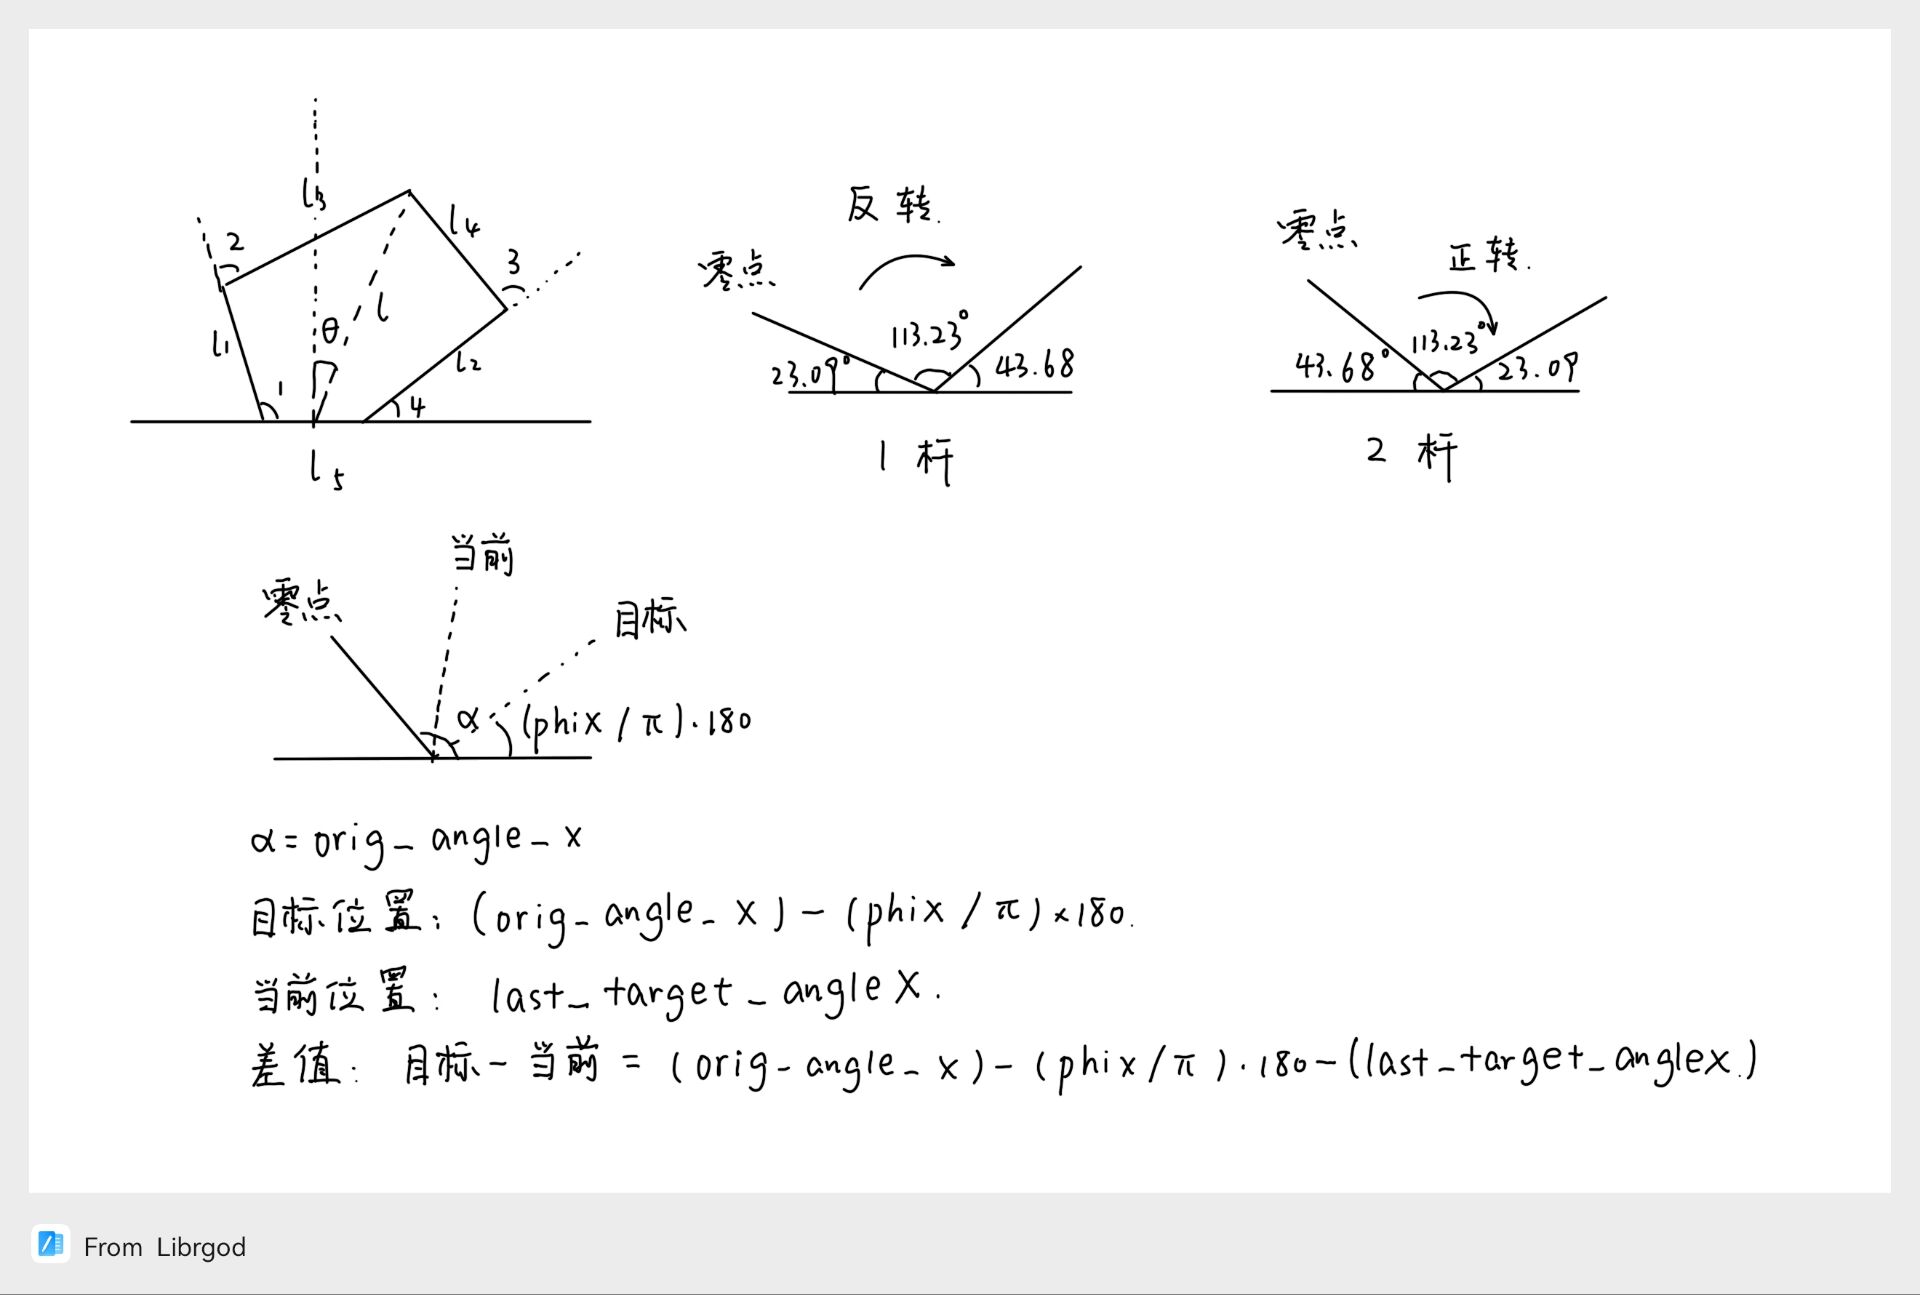 l3
l4
2
3
θ
l
l1
l2
1
4
l5
反转.
零点
113.23°
23.09°
43.68
1 杆
零点
正转.
113.23°
43.68°
23.09
2 杆
当前
零点
目标
α
(phix / π)·180
α = orig_angle_x
目标位置: (orig_angle_x) - (phix / π) × 180.
当前位置: last_target_angleX.
差值: 目标 - 当前 = (orig_angle_x) - (phix/π)·180 - (last_target_anglex.)
From Librgod